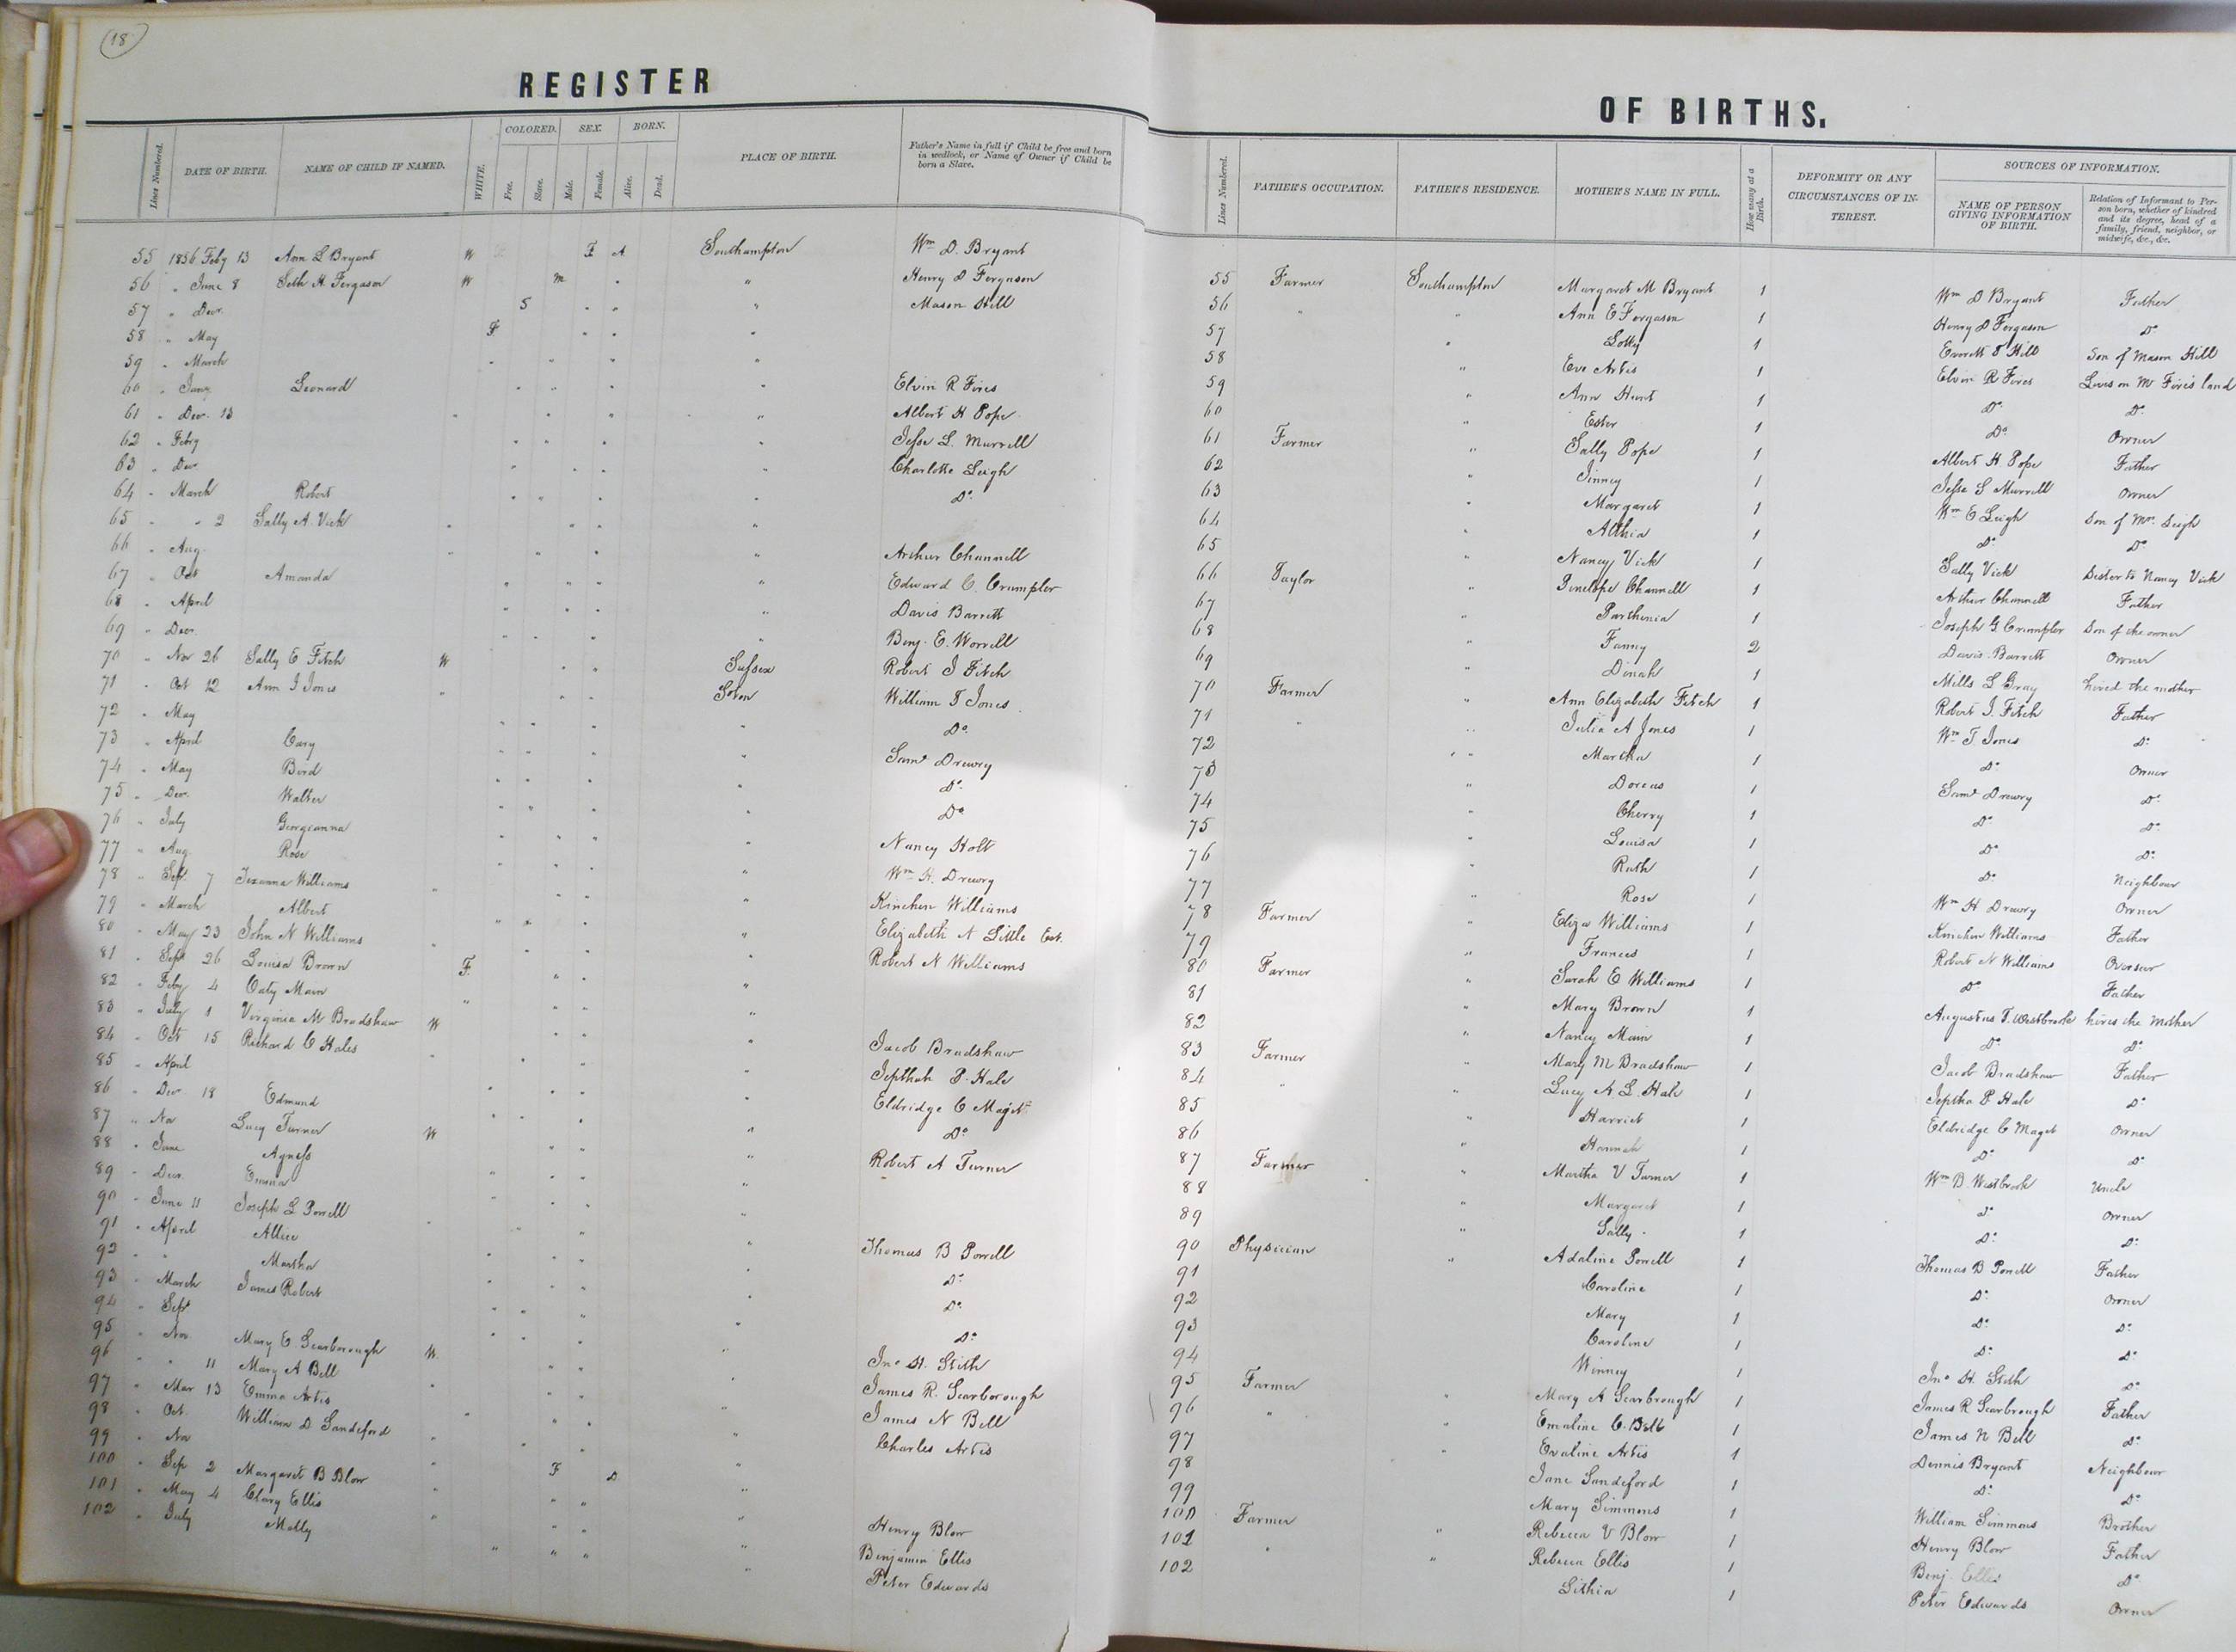 18
REGISTER
OF BIRTHS.
Lines Numbered. DATE OF BIRTH. NAME OF CHILD IF NAMED. WHITE. COLORED. Free. Slave. SEX. Male. Female. BORN. Alive. Dead. PLACE OF BIRTH. Father's Name in full if Child be free and born in wedlock, or Name of Owner if Child be born a Slave.
55 1856 Feby 13 Ann L Bryant W F A Southampton Wm D. Bryant
56 " June 8 Seth H. Fergason W m " " Henry D Fergason
57 " Decr. S " " " Mason Hill
58 " May F " " "
59 " March " " " "
60 " Jany Leonard " " " " Elvin R Fires
61 " Decr. 13 " " " " Albert H Pope
62 " Feby " " " " Jesse L. Murrell
63 " Decr " " " " Charlotte Leigh
64 " March Robert " " " " Do.
65 " " 2 Sally A. Vick " " " "
66 " Aug. " " " " Arthur Channell
67 " Oct Amanda " " " " Edward C. Crumpler
68 " April " " " Davis Barrett
69 " Decr. " " " Benj. E. Worrell
70 " Nov 26 Sally E Fitch W " " Sussex Robert J Fitch
71 " Oct 12 Ann J Jones " " " Soton William T Jones
72 " May " " " " Do.
73 " April Cary " " " " Saml Drewry
74 " May Bird " " " " Do.
75 " Decr. Walter " " " " Do
76 " July Georgeanna " " " " Nancy Holt
77 " Aug Rose " " " " Wm H. Drewry
78 " Sept. 7 Texanna Williams " " " " Kinchen Williams
79 " March Albert " " " " Elizabeth N Little Est.
80 " May 23 John N Williams " " " " Robert N Williams
81 " Sept 26 Louisa Brown F. " " "
82 " Feby 4 Caty Main " " " "
83 " July 1 Virginia M Bradshaw W " " " Jacob Bradshaw
84 " Oct 15 Richard C Hales " " " " Jepthah P. Hale
85 " April " " " " Eldridge C Maget
86 " Decr 18 Edmund " " " " Do.
87 " Nov Lucy Turner W " " " Robert A Turner
88 " June Agness " " " "
89 " Decr. Emma " " " "
90 " June 11 Joseph L Powell " " " " Thomas B Powell
91 " April Allice " " " " Do.
92 " " Martha " " " " Do.
93 " March James Robert " " " " Do.
94 " Sept " " " " Jno H. Stith
95 " Nov Mary E. Scarborough W. " " " James R. Scarborough
96 " " 11 Mary A Bell " " " " James N Bell
97 " Mar 13 Emma Artis " " " " Charles Artis
98 " Oct. William D Sandeford " " " "
99 " Nov " F D "
100 " Sep 2 Margaret B Blow " " " " Henry Blow
101 " May 4 Clary Ellis " " " " Benjamin Ellis
102 " July Molly " " " " Peter Edwards
Lines Numbered. FATHER'S OCCUPATION. FATHER'S RESIDENCE. MOTHER'S NAME IN FULL. How many at a Birth. DEFORMITY OR ANY CIRCUMSTANCES OF INTEREST. SOURCES OF INFORMATION. NAME OF PERSON GIVING INFORMATION OF BIRTH. Relation of Informant to Person born, whether of kindred and its degree, head of a family, friend, neighbor, or midwife, &c., &c.
55 Farmer Southampton Margaret M Bryant 1 Wm D Bryant Father
56 " " Ann E Fergason 1 Henry D Fergason Do
57 " Lotty 1 Everett T Hill Son of Mason Hill
58 " Eve Artis 1 Elvin R Fires Lives on Mr Fires land
59 " Ann Hunt 1 Do. Do.
60 " Ester 1 Do. Owner
61 Farmer " Sally Pope 1 Albert H. Pope Father
62 " Jinney 1 Jesse L Murrell Owner
63 " Margaret 1 Wm E Leigh Son of Mrs. Leigh
64 " Althia 1 Do. Do.
65 " Nancy Vick 1 Sally Vick Sister to Nancy Vick
66 Taylor " Penelope Channell 1 Arthur Channell Father
67 " Parthenia 1 Joseph G. Crumpler Son of the owner
68 " Fanny 2 Davis Barrett Owner
69 " Dinah 1 Mills L Gray hired the mother
70 Farmer " Ann Elizabeth Fitch 1 Robert J. Fitch Father
71 " " Julia A Jones 1 Wm T. Jones Do.
72 " Martha 1 Do. Owner
73 " Dorcas 1 Saml Drewry Do.
74 " Cherry 1 Do. Do.
75 " Louisa 1 Do. Do.
76 " Ruth 1 Do. Neighbour
77 " Rose 1 Wm H Drewry Owner
78 Farmer " Eliza Williams 1 Kinchen Williams Father
79 " Frances 1 Robert N Williams Overseer
80 Farmer " Sarah E Williams 1 Do. Father
81 " Mary Brown 1 Augustus T. Westbrook hires the mother
82 " Nancy Main 1 Do. Do.
83 Farmer " Mary M Bradshaw 1 Jacob Bradshaw Father
84 " " Lucy A. L. Hale 1 Jeptha P Hale Do.
85 " Harriet 1 Eldridge C Maget Owner
86 " Hannah 1 Do. Do.
87 Farmer " Martha V Turner 1 Wm B. Westbrook Uncle
88 " Margaret 1 Do Owner
89 " Sally 1 Do. Do.
90 Physician " Adaline Powell 1 Thomas B Powell Father
91 Caroline 1 Do. Owner
92 Mary 1 Do. Do.
93 Caroline 1 Do. Do.
94 Winney 1 Jno H. Stith Do.
95 Farmer " Mary A Scarbrough 1 James R Scarbrough Father
96 " " Emaline C. Bell 1 James N Bell Do.
97 " Evaline Artis 1 Dennis Bryant Neighbour
98 Jane Sandeford 1 Do. Do.
99 Mary Simmons 1 William Simmons Brother
100 Farmer " Rebecca V Blow 1 Henry Blow Father
101 " " Rebecca Ellis 1 Benj. Ellis Do.
102 Lithia 1 Peter Edwards Owner